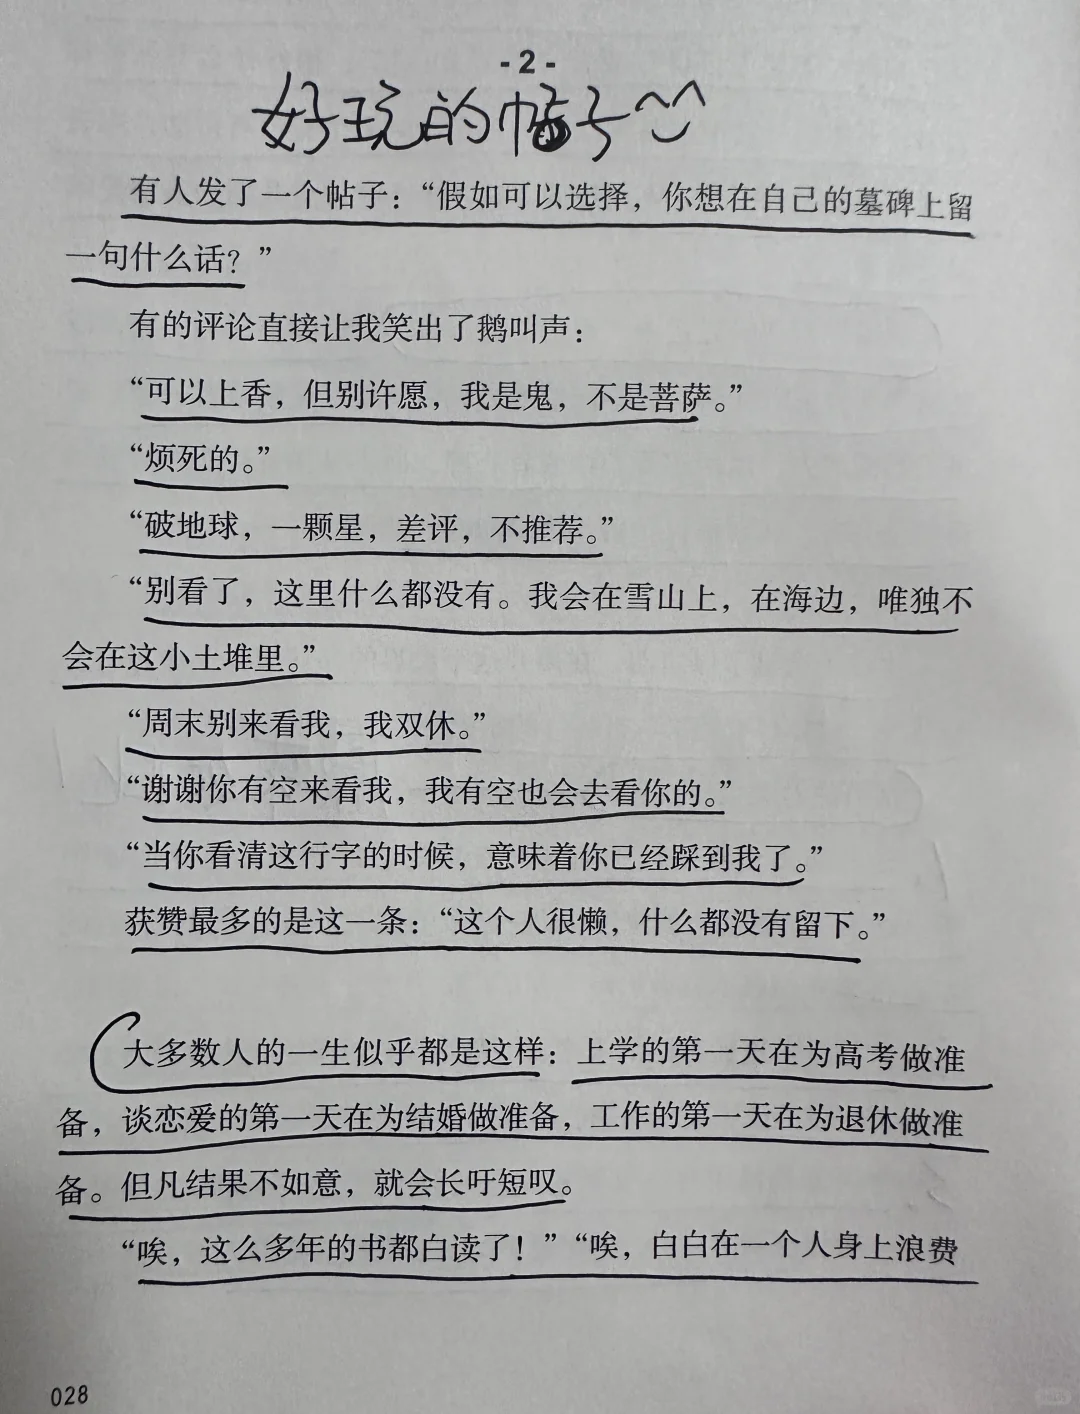 -2-
好玩的帖子
有人发了一个帖子：“假如可以选择，你想在自己的墓碑上留
一句什么话？”
有的评论直接让我笑出了鹅叫声：
“可以上香，但别许愿，我是鬼，不是菩萨。”
“烦死的。”
“破地球，一颗星，差评，不推荐。”
“别看了，这里什么都没有。我会在雪山上，在海边，唯独不
会在这小土堆里。”
“周末别来看我，我双休。”
“谢谢你有空来看我，我有空也会去看你的。”
“当你看清这行字的时候，意味着你已经踩到我了。”
获赞最多的是这一条：“这个人很懒，什么都没有留下。”
大多数人的一生似乎都是这样：上学的第一天在为高考做准
备，谈恋爱的第一天在为结婚做准备，工作的第一天在为退休做准
备。但凡结果不如意，就会长吁短叹。
“唉，这么多年的书都白读了！”“唉，白白在一个人身上浪费
028